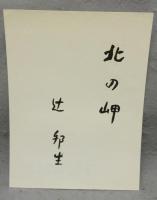 北の岬
辻邦生